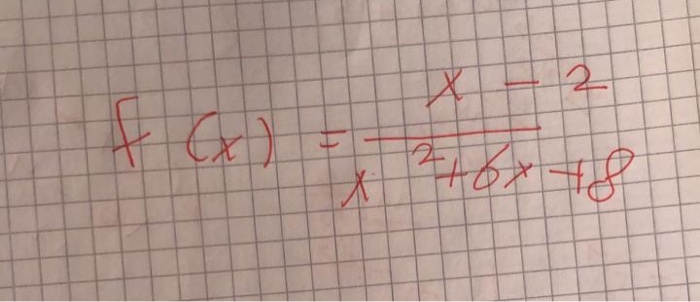 f(x) = x - 2 / x² + 6x + 8